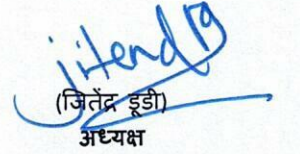 jitend
(जितेंद्र डूडी)
अध्यक्ष